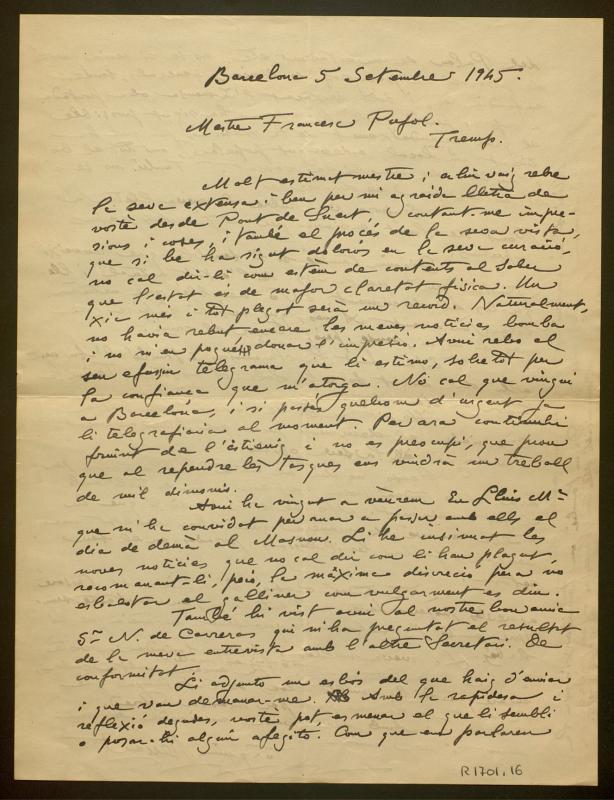 Barcelona 5 Setembre 1945.
Mestre Francesc Pujol.
Tremp.
Molt estimat mestre; ahir vaig rebre
la seva extensa i ben per mi agraida lletra de
vostè desde Pont de Suert, contant-me impre-
sions i coses, i també el procés de la seva vista,
que si be ha sigut dolorós en la seva curació,
no cal dir-li com estèm de contents al saber
que l'estat és de major claretat física. Un
xic més i tot plegat serà un record. Naturalment,
no havia rebut encare les meves notícies bomba
i no m'en pogué donar l'impresió. Avui rebo el
seu efusiu telegrama que li estimo, sobretot per
la confiança que m'atorga. Nó cal que vingui
a Barcelona, i si passés quelcom d'urgent ja
li telegrafiaria al moment. Per ara continuhi
fruint de l'istiueig i no es preocupi, que prou
que al rependre les tasques ens vindrà un treball
de mil dimonis.
Avui ha vingut a veurem En Lluis Mª
que m'ha convidat per anar a passar amb ells el
dia de demà al Masnou. Li he insinuat les
noves notícies que no cal dir com li han plagut,
recomanant-li, però, la màxima discreció per a no
esbalotar el galliner com vulgarment es diu.
També hi vist avui al nostre bon amic
Sr N. de Carreras qui m'ha preguntat el resultat
de la meva entrevista amb l'altre Secretari. De
conformitat,
Li adjunto un esbós del que haig d'enviar
i que van demanar-me. Amb la rapidesa i
reflexió degudes, vostè pot esmenar el que li sembli
o posar-hi algún afegitó. Com que em parlaren
R 1701, 16